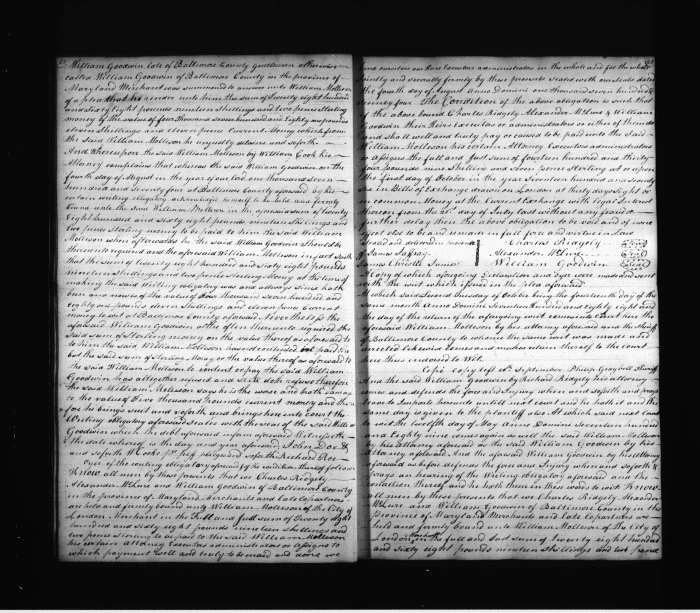 William Goodwin late of Baltimore County gentleman otherwise
called William Goodwin of Baltimore County in the province of
Maryland Merchant was summoned to answer unto William Molleson
of a plea that he render unto him the sum of Twenty eight hundred
and sixty eight pounds nineteen shillings and two pence sterling
money of the value of four thousand seven hundred and eighty one pounds
eleven shillings and eleven pence Current Money which from
the said William Molleson he unjustly detains and soforth
And whereupon the said William Molleson by William Cook his
Attorney complains that whereas the said William Goodwin on the
fourth day of August in the year of our Lord one thousand seven
hundred and seventy four at Baltimore County aforesaid by his
certain writing obligatory acknowledged himself to be held and firmly
bound unto the said William Molleson in the aforesaid sum of twenty
Eight hundred and sixty eight pounds nineteen shillings and
two pence sterling money to be paid to him the said William
Molleson when afterwards he the said William Goodwin should be
thereunto required and the aforesaid William Molleson in fact saith
that the sum of twenty eight hundred and sixty eight pounds
nineteen shillings and two pence sterling Money at the time of
making the said writing obligatory was and always since hath
been and now is of the value of four thousand seven hundred and
eighty one pounds eleven shillings and eleven pence Current
money to wit at Baltimore County aforesaid Nevertheless the
aforesaid William Goodwin altho often thereunto required the
said sum of sterling money or the value thereof as aforesaid to
to him the said William Molleson hath not rendered or paid
but the said sum of sterling Money or the value thereof as aforesaid to
the said William Molleson to content or pay the said William
Goodwin has altogether refused and still doth refuse therefore
the said William Molleson says he is the worse and hath damage
to the value of Five thousand pounds current money and there
fore he brings suit and soforth and brings here into court the
Writing obligatory aforesaid sealed with the seal of the said William
Goodwin which the debt aforesaid in form aforesaid Witnesseth
the date whereof is the day and year aforesaid John Doe &
and soforth W Cooke pr. quer pledges and soforth Richard Roe
Oyer of the writing obligatory aforesaid by the said William thereof follows
Know all men by these presents that we Charles Ridgely
Alexander McLure and William Goodwin of Baltimore County
in the province of Maryland Merchants and late Copartners
are held and firmly bound unto William Molleson of the City of
London Merchant in the full and just sum of Twenty eight
hundred and sixty eight pounds nineteen shillings and
two pence sterling to be paid to the said William Molleson
his certain Attorney Executors administrators or assigns to
which payment well and truly to be made and done we
bind ourselves our Heirs Executors administrators in the whole and for the whole
jointly and severally firmly by these presents sealed with our seals dated
the fourth day of August Anno Domini one thousand seven hundred &
seventy four The Condition of the above obligation is such that
if the above bound Charles Ridgely Alexander McLure & William
Goodwin their Heirs Executors or administrators or either of them do
and shall well and truly pay or cause to be paid unto the said
William Molleson his certain Attorney Executors administrators
or assigns the full and just sum of fourteen hundred and thirty
four pounds nine shillings and seven pence sterling at or upon
first day of October in the year seventeen hundred and seventy
six in Bills of Exchange drawn on London at thirty days sight or
in common Money at the Current Exchange with legal Interest
thereon from the 21st day of July last without any fraud or
further delay then the above obligation to be void and of none
effect else to be and remain in full force and virtue in Law
Sealed and delivered in presence
of James Jaffray
James Christie Junior
Charles Ridgely (Seal)
Alexander McLure (Seal)
William Goodwin (Seal)
A Copy of which aforegoing Declaration and Oyer were made and sent
with the writ which issued in the plea aforesaid
At which said second Tuesday of October being the fourteenth day of the
same month Anno Domini seventeen hundred and Eighty eight
the day of the return of the aforegoing writ comes into Court here the
aforesaid William Molleson by his attorney aforesaid and the Sheriff
of Baltimore County to whom the same writ was made and
directed likewise comes and makes return thereof to the court
here thus endorsed to Wit.
Cepi copy left September Philip Graybell Sheriff
And the said William Goodwin by Richard Ridgely his attorney
comes and defends the force and Injury when and soforth and prays
leave to Imparle thereunto until next court and he hath it and the
same day is given to the plaintiff also At which said next court
to wit the twelfth day of May Anno Domini seventeen hundred
and Eighty nine comes again as well the said William Molleson
by his attorney aforesaid as the aforesaid William Goodwin by his
Attorney aforesaid And the aforesaid William Goodwin by his Attorney
aforesaid as before defends the force and Injury when and soforth &
prays an hearing of the Writing obligatory aforesaid and the
condition thereof and he hath them in these words to wit Know
all men by these presents that we Charles Ridgely Alexander
McLure and William Goodwin of Baltimore County in the
Province of Maryland Merchants and late Copartners are
held and firmly bound unto William Molleson of the City of
London Merchant in the full and just sum of twenty eight hundred
and sixty eight pounds nineteen shillings and two pence